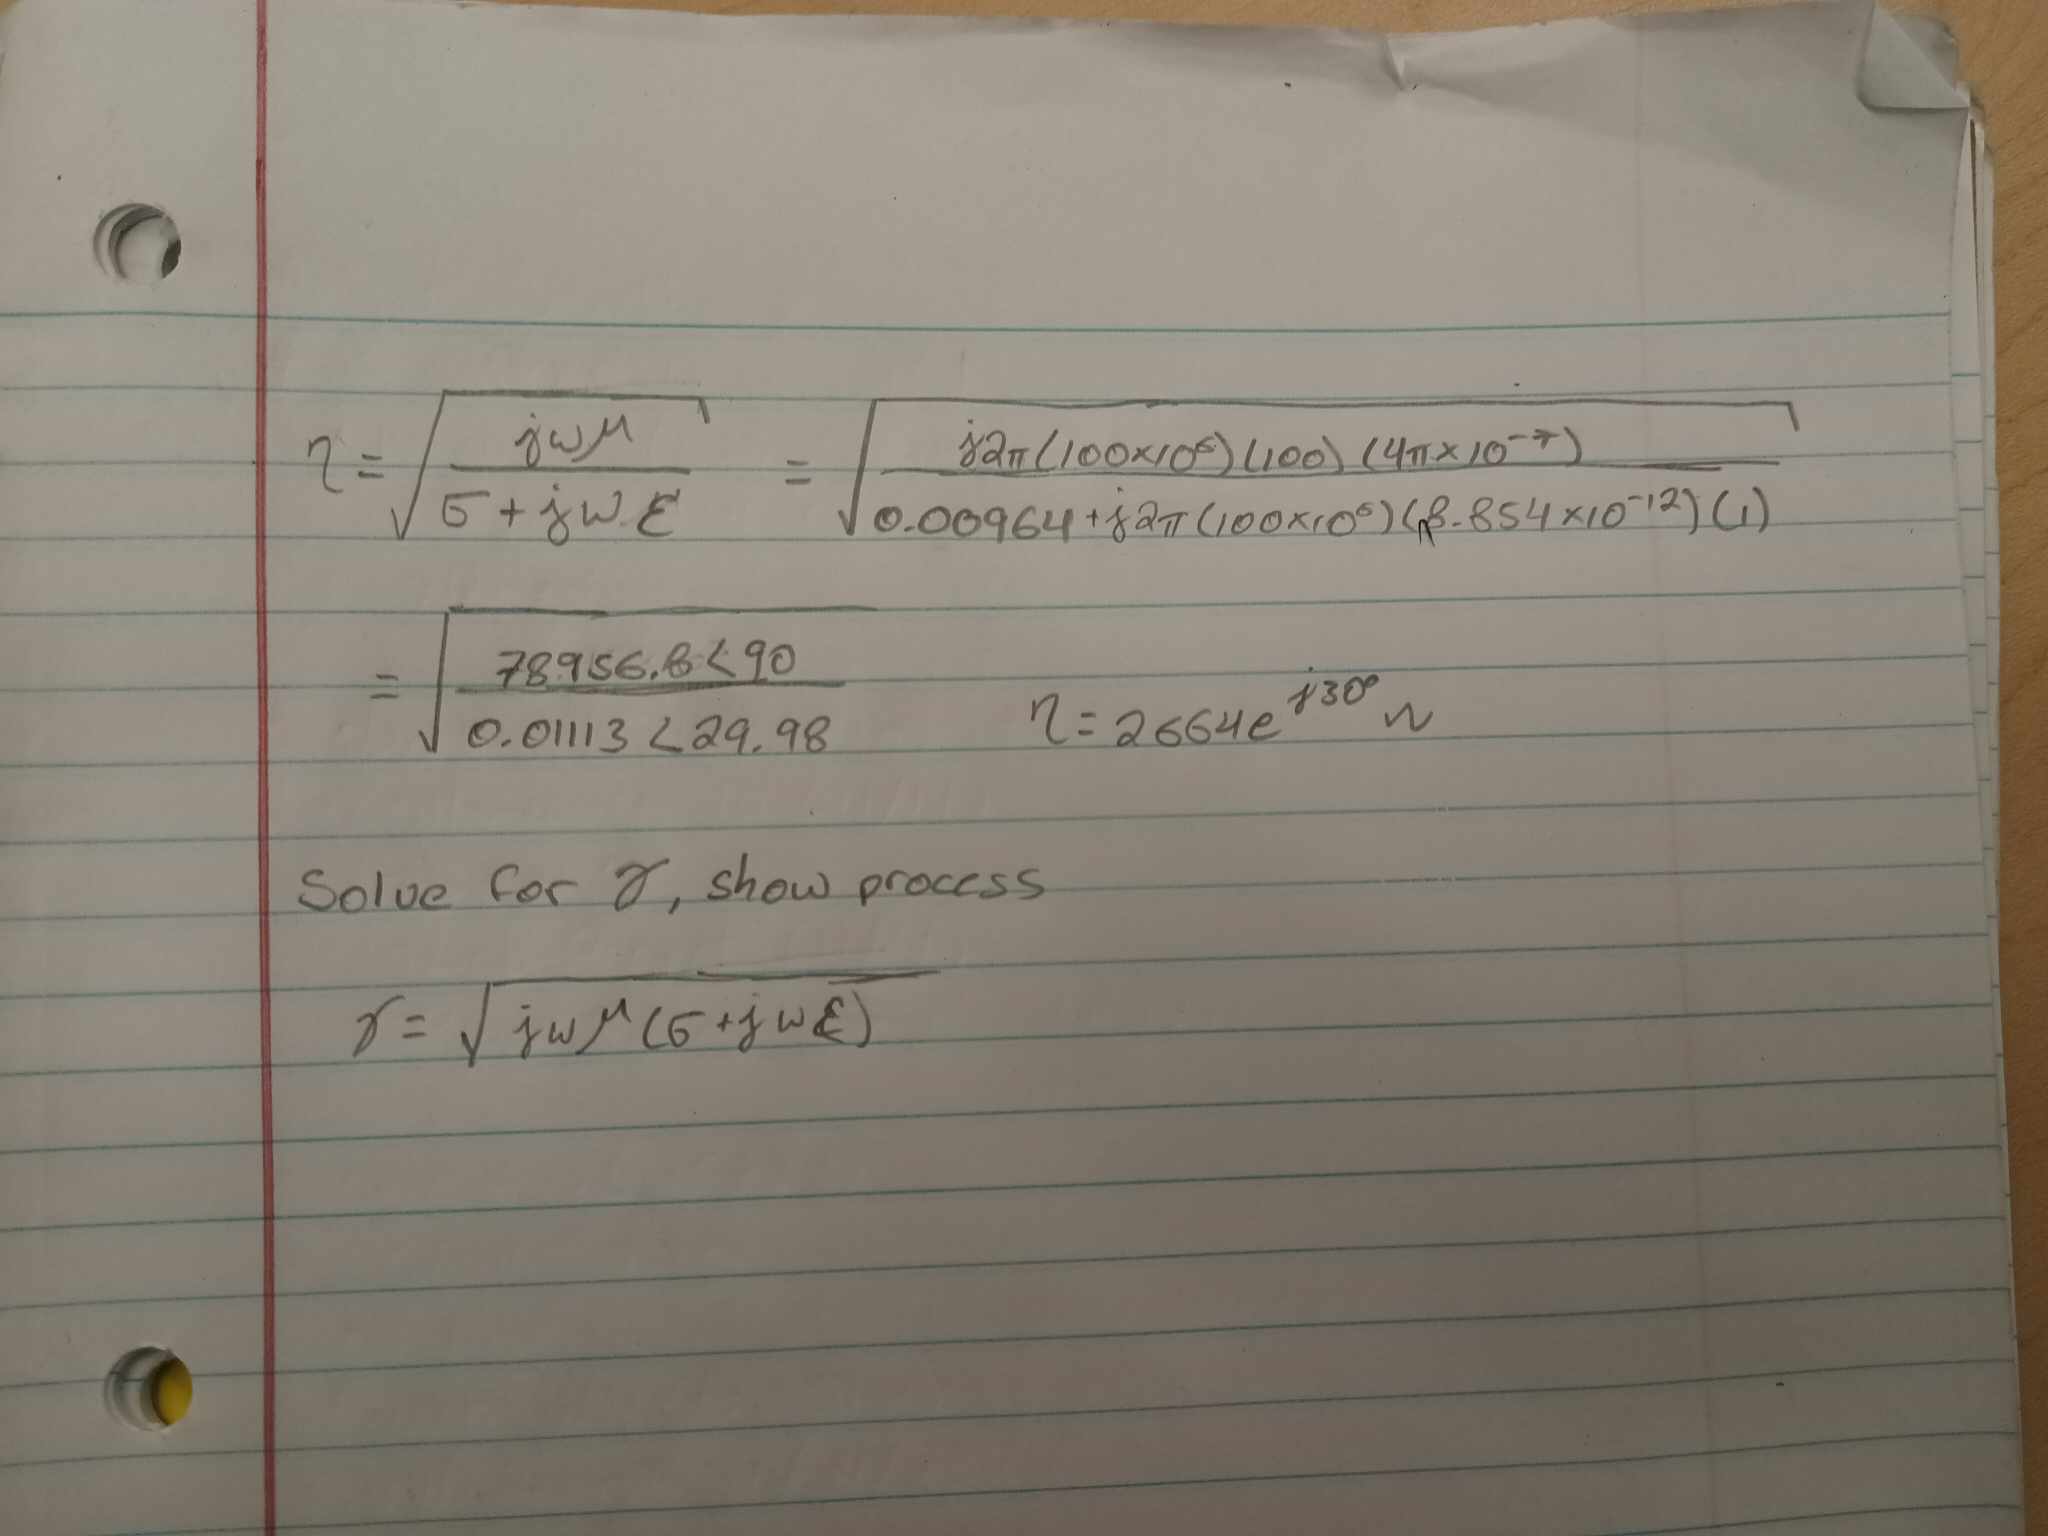 η = √(jωμ / (σ + jωε)) = √(j2π(100×10⁶)(100)(4π×10⁻⁷) / (0.00964 + j2π(100×10⁶)(8.854×10⁻¹²)(1)))
= √(78956.8<90 / 0.01113<29.98) η = 2664e^(j30°) Ω
Solve for γ, show process
γ = √(jωμ(σ + jωε))